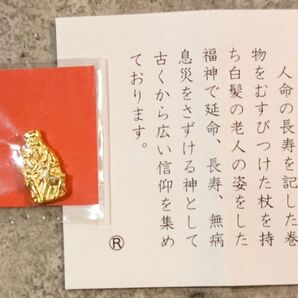 人命の長寿を記した巻
物をむすびつけた杖を持
ち白髪の老人の姿をした
福神で延命、長寿、無病
息災をさずける神として
古くから広い信仰を集め
ております。
®